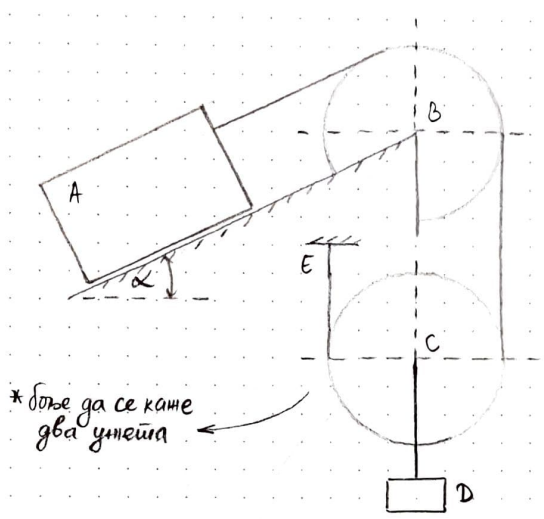 B
A
E
α
C
* боље да се каже
два ужета
D